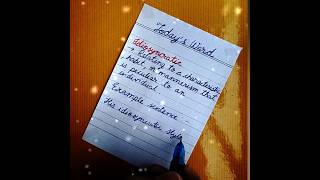 Today's Word
Idiosyncratic
→ Relating to a characteristic
, habit, or mannerism that
is peculiar to an
individual.
Example sentence
His idiosyncratic style